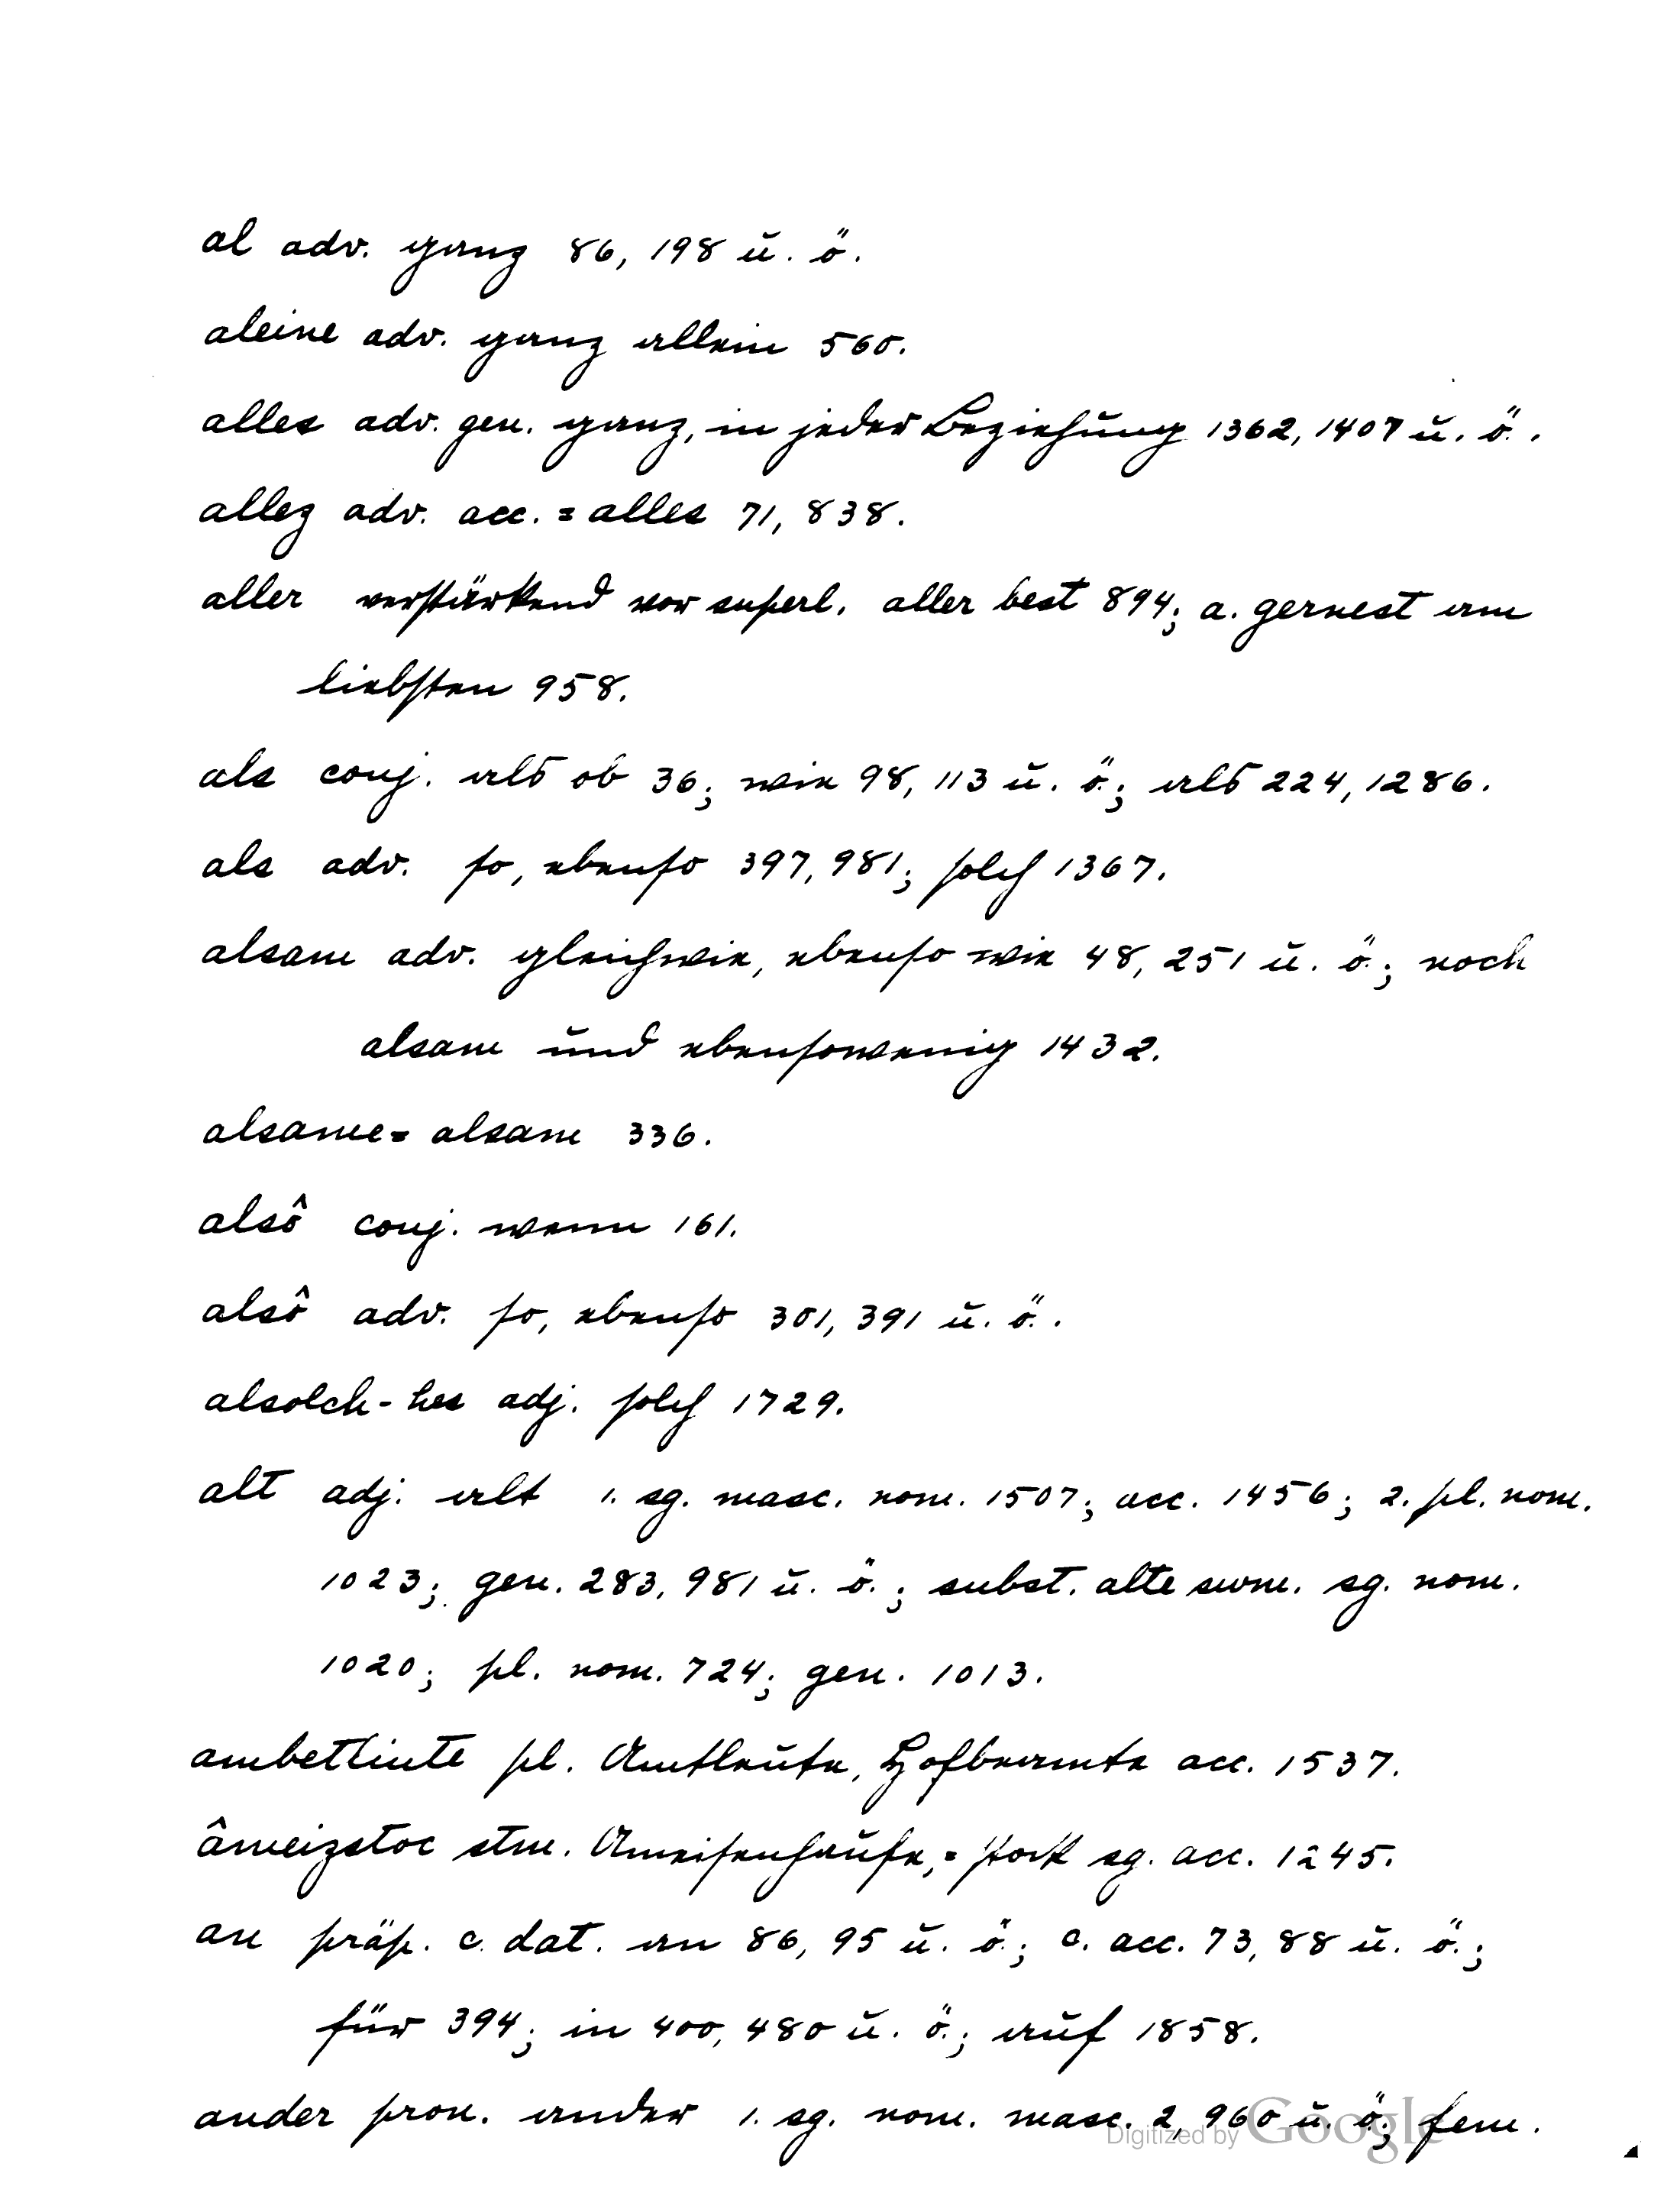 al adv. ganz 86, 198 u. ö.
aleine adv. ganz allein 560.
alles adv. gen. ganz, in jeder Beziehung 1362, 1407 u. ö.
allez adv. acc. = alles 71, 838.
aller verstärkend vor superl. aller best 894; a. gernest am
liebsten 958.
als conj. als ob 36; wie 98, 113 u. ö.; als 224, 1286.
als adv. so, ebenso 397, 981; solch 1367.
alsam adv. gleichwie, ebenso wie 48, 251 u. ö.; noch
alsam und ebensowenig 1432.
alsame = alsam 336.
alsô conj. wenn 161.
alsô adv. so, ebenso 301, 391 u. ö.
alsolch-hes adj. solch 1729.
alt adj. alt 1. sg. masc. nom. 1507; acc. 1456; 2. pl. nom.
1023; gen. 283, 981 u. ö.; subst. alte swm. sg. nom.
1020; pl. nom. 724; gen. 1013.
ambetliute pl. Amtleute, Hofbeamte acc. 1537.
âmeizstoc stm. Ameisenhaufe, = stock sg. acc. 1245.
an präp. c. dat. an 86, 95 u. ö.; c. acc. 73, 88 u. ö.;
für 394; in 400, 480 u. ö.; auf 1858.
ander pron. ander 1. sg. nom. masc. 2, 960 u. ö.; fem.
Digitized by Google